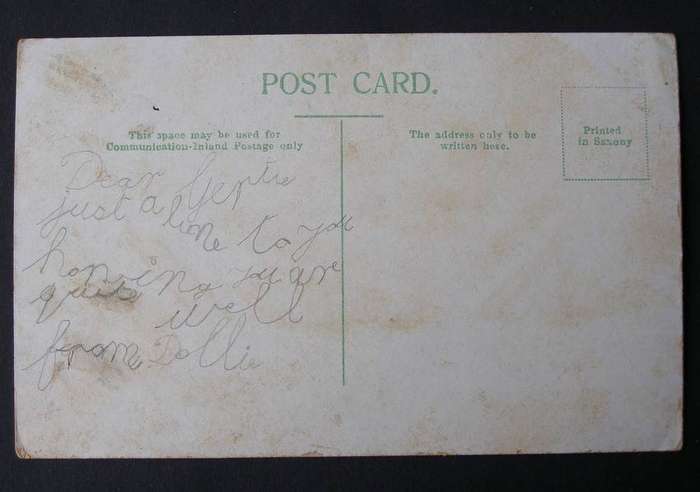 POST CARD.
This space may be used for
Communication-Inland Postage only
The address only to be
written here.
Printed
in Saxony
Dear Gertie
just a line to you
hopping you are
quite well
from Dollie